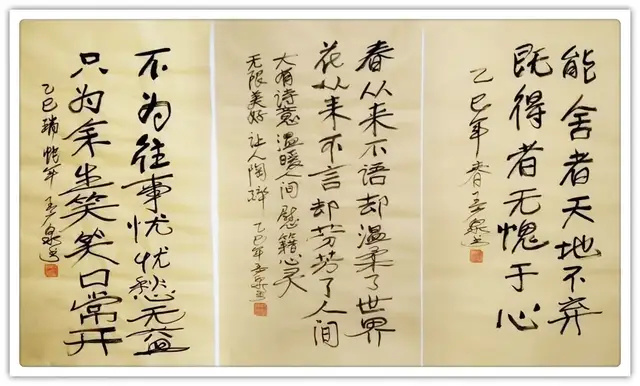 能舍者天地不弃
既得者无愧于心
乙巳年春
春从来不语却温柔了世界
花从来不言却芬芳了人间
大有诗意温暖人间慰籍心灵
无限美好让人陶醉 乙巳年
不为往事忧忧愁无益
只为余生笑笑口常开
乙巳瑞蛇年